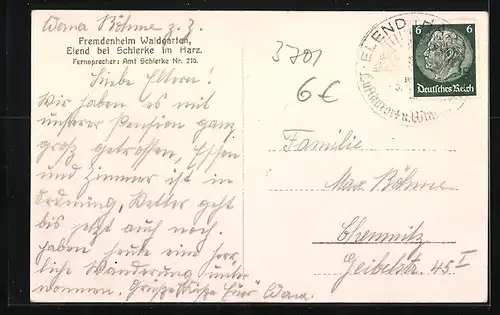 Wona Böhme z. Z.
Fremdenheim Waldgarten,
Elend bei Schierke im Harz.
Fernsprecher: Amt Schierke Nr. 210.
Liebe Eltern!
Wir haben es mit
unserer Pension ganz
groß getroffen, Essen
und Zimmer ist in
Ordnung, Wetter geht
bis jetzt auch noch.
haben heute eine herr-
liche Wanderung unter
nommen. Grüße Küße Eure Wona.
3701
6€
ELEND
Luftkurort u. Win
6 6
Deutsches Reich
Familie
Max Böhme
Chemnitz
Geibelstr. 45 I